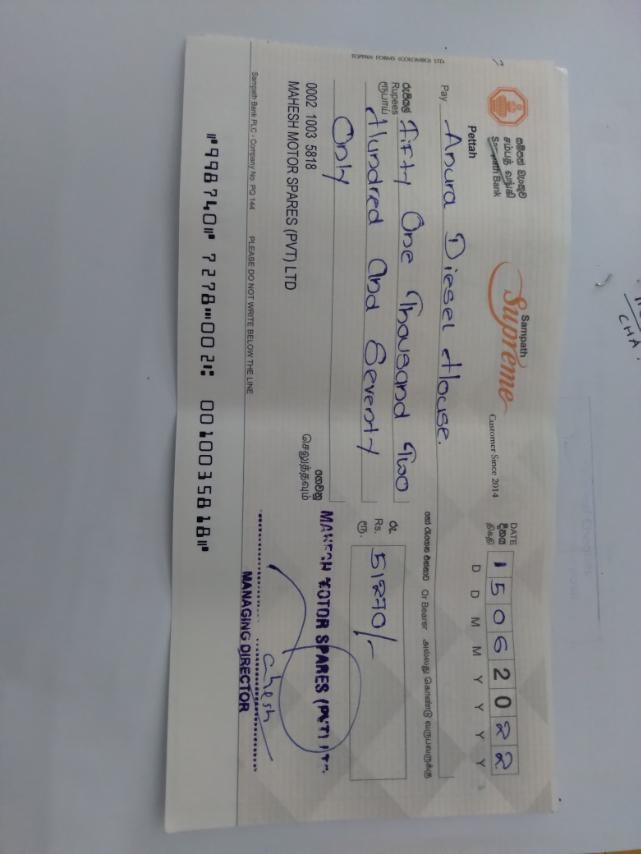 TOPPAN FORMS (COLOMBO) LTD.
සම්පත් බැංකුව
சம்பத் வங்கி
Sampath Bank
Sampath
Supreme
Customer Since 2014
DATE
දිනය
திகதி
1 5 0 6 2 0 2 2
D D M M Y Y Y Y
Pettah
Pay Anura Diesel House.
Or Bearer
රුපියල් Fifty One Thousand Two
Rupees
ரூபாய் Hundred And Seventy
Only
රු.
Rs. 51270/-
ரூ.
0002 1003 5818
MAHESH MOTOR SPARES (PVT) LTD
ගෙවනු
செலுத்தவும்
MAHESH MOTOR SPARES (PVT) LTD.
MANAGING DIRECTOR
Sampath Bank PLC - Company No. PQ 144 PLEASE DO NOT WRITE BELOW THE LINE
⑈998740⑈ 7278⑉002⑆ 0010035818⑈